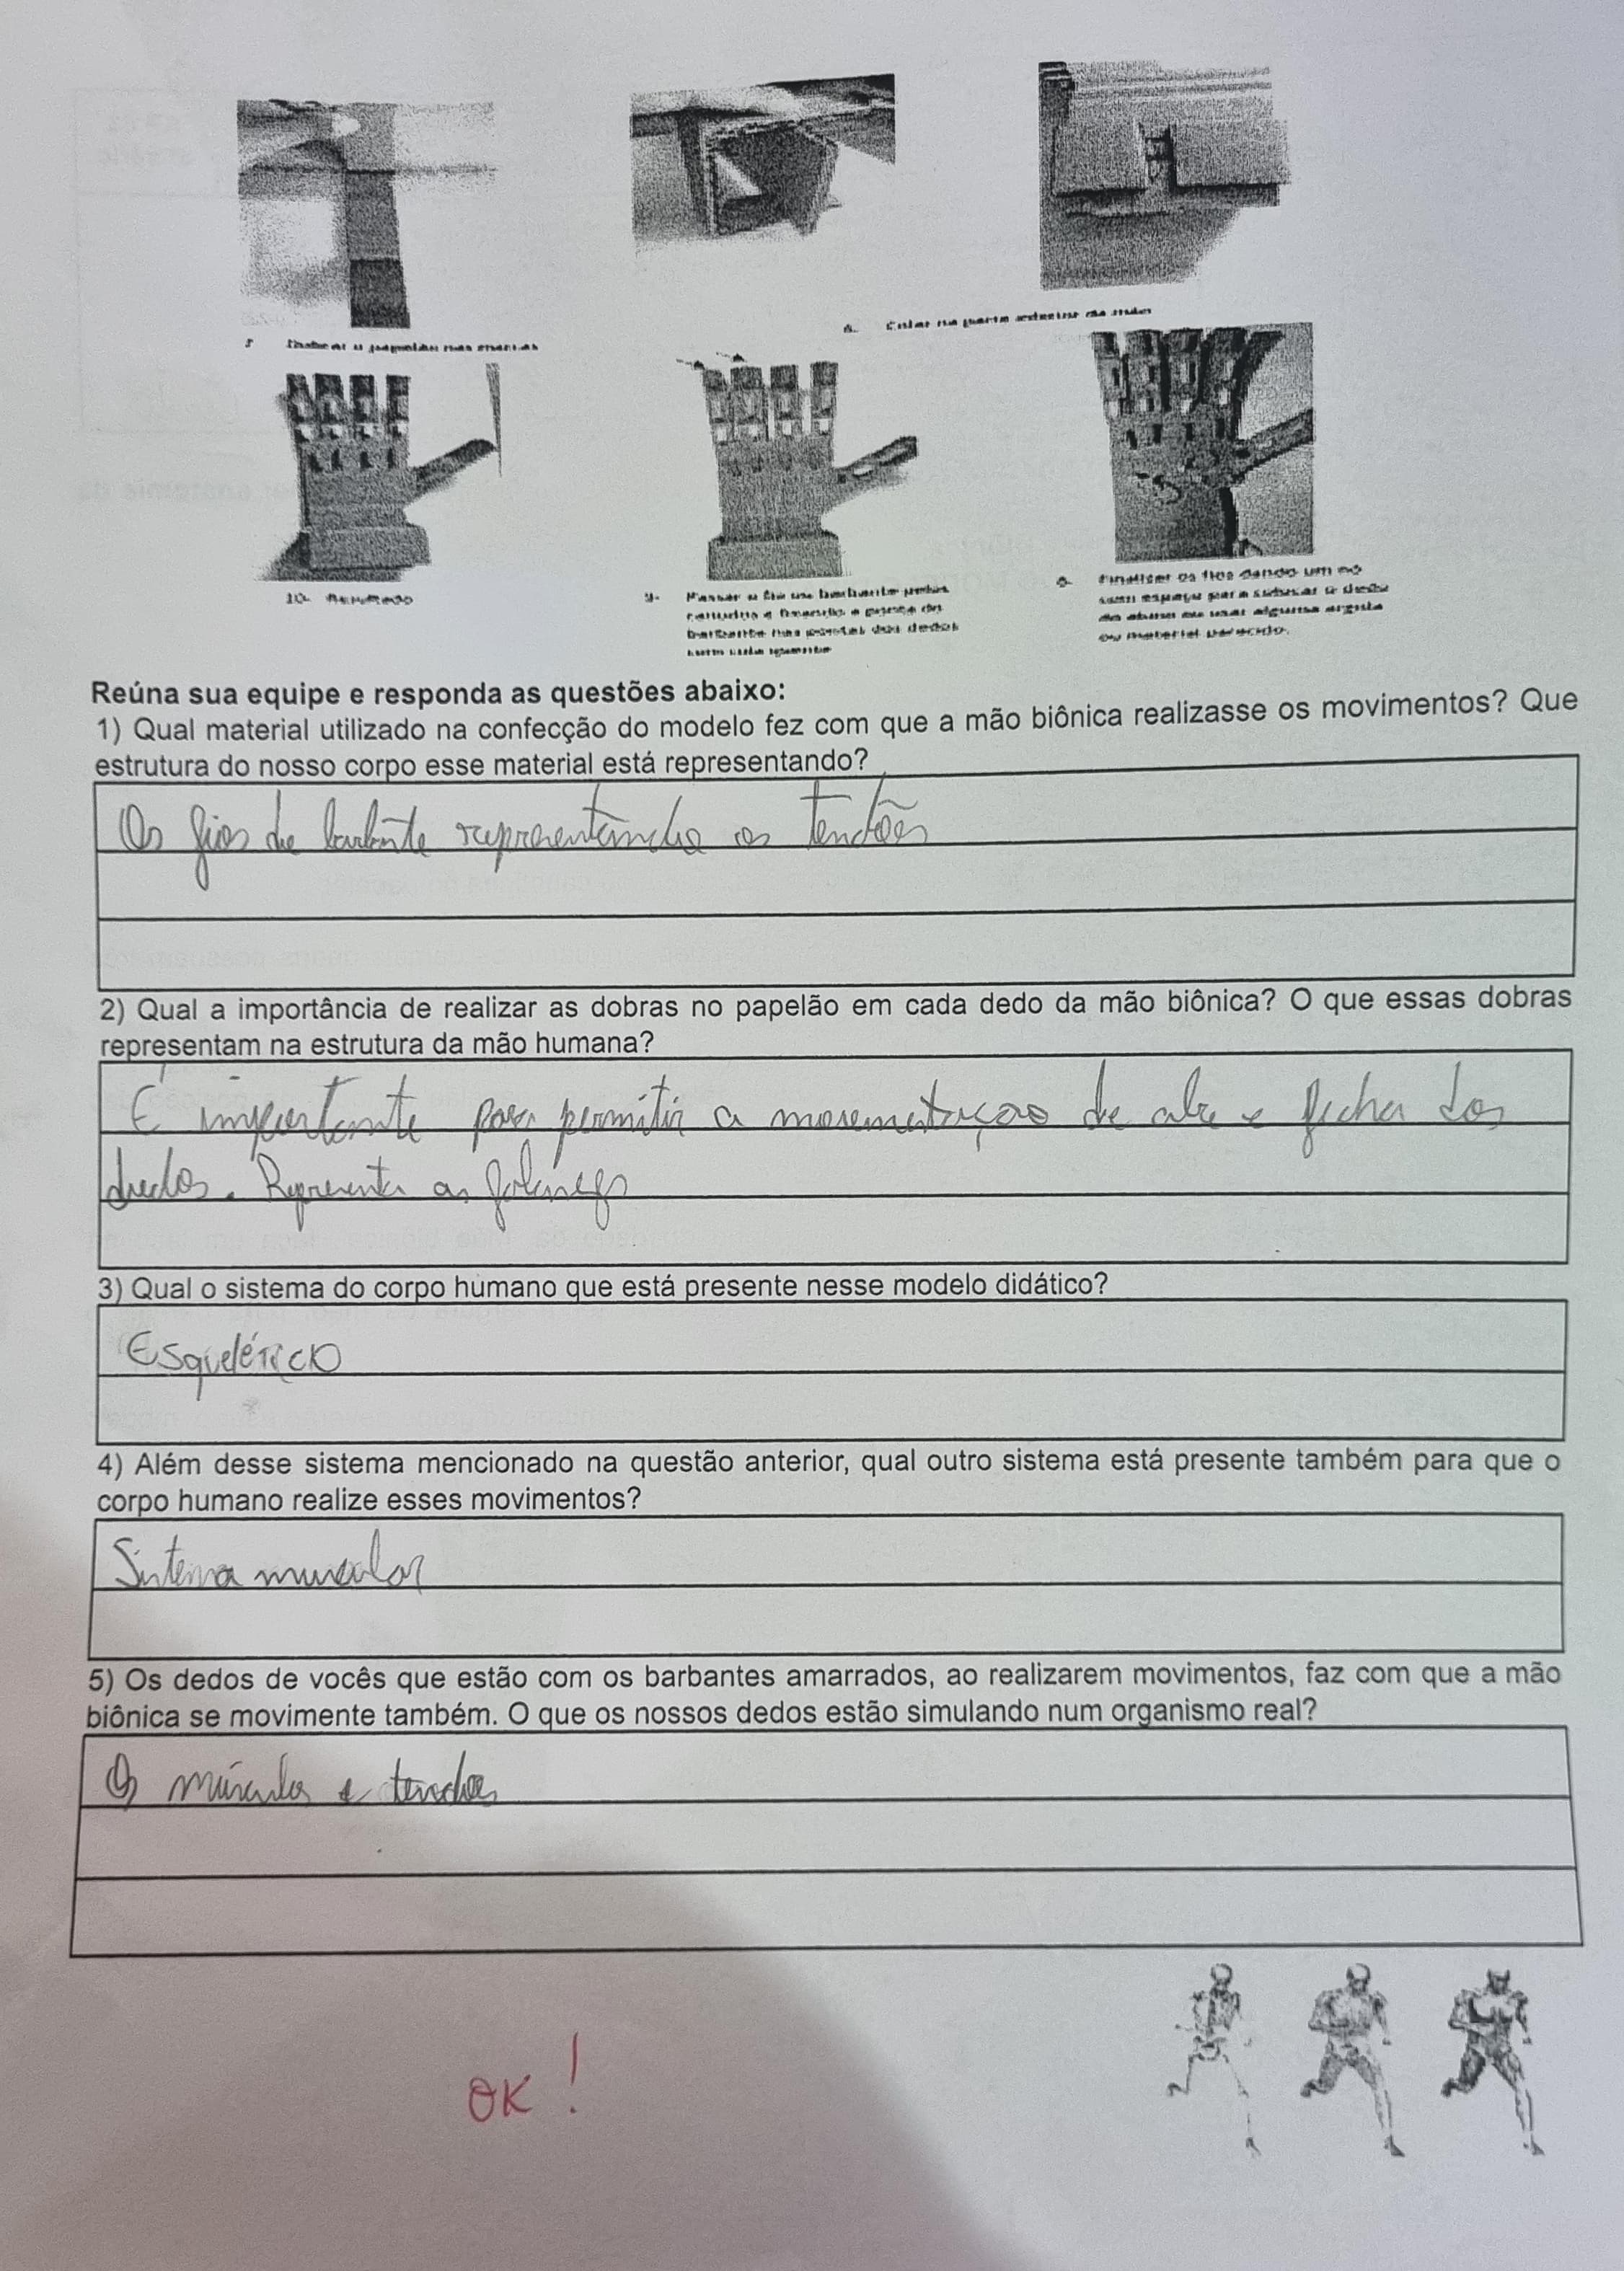 10- Resultado
9- Passar o fio de barbante pelos
canudos e fixando a ponta do
barbante nas pontas dos dedos
8- Finalizar os fios dando um nó
com espaço para colocar o dedo
do aluno ou usar alguma argola
ou material parecido.
Reúna sua equipe e responda as questões abaixo:
1) Qual material utilizado na confecção do modelo fez com que a mão biônica realizasse os movimentos? Que
estrutura do nosso corpo esse material está representando?
Os fios de barbante representando os tendões
2) Qual a importância de realizar as dobras no papelão em cada dedo da mão biônica? O que essas dobras
representam na estrutura da mão humana?
É importante para permitir a movimentação de abre e fecha dos
dedos. Representa as falanges
3) Qual o sistema do corpo humano que está presente nesse modelo didático?
Esquelético
4) Além desse sistema mencionado na questão anterior, qual outro sistema está presente também para que o
corpo humano realize esses movimentos?
Sistema muscular
5) Os dedos de vocês que estão com os barbantes amarrados, ao realizarem movimentos, faz com que a mão
biônica se movimente também. O que os nossos dedos estão simulando num organismo real?
Os músculos e tendões
OK!